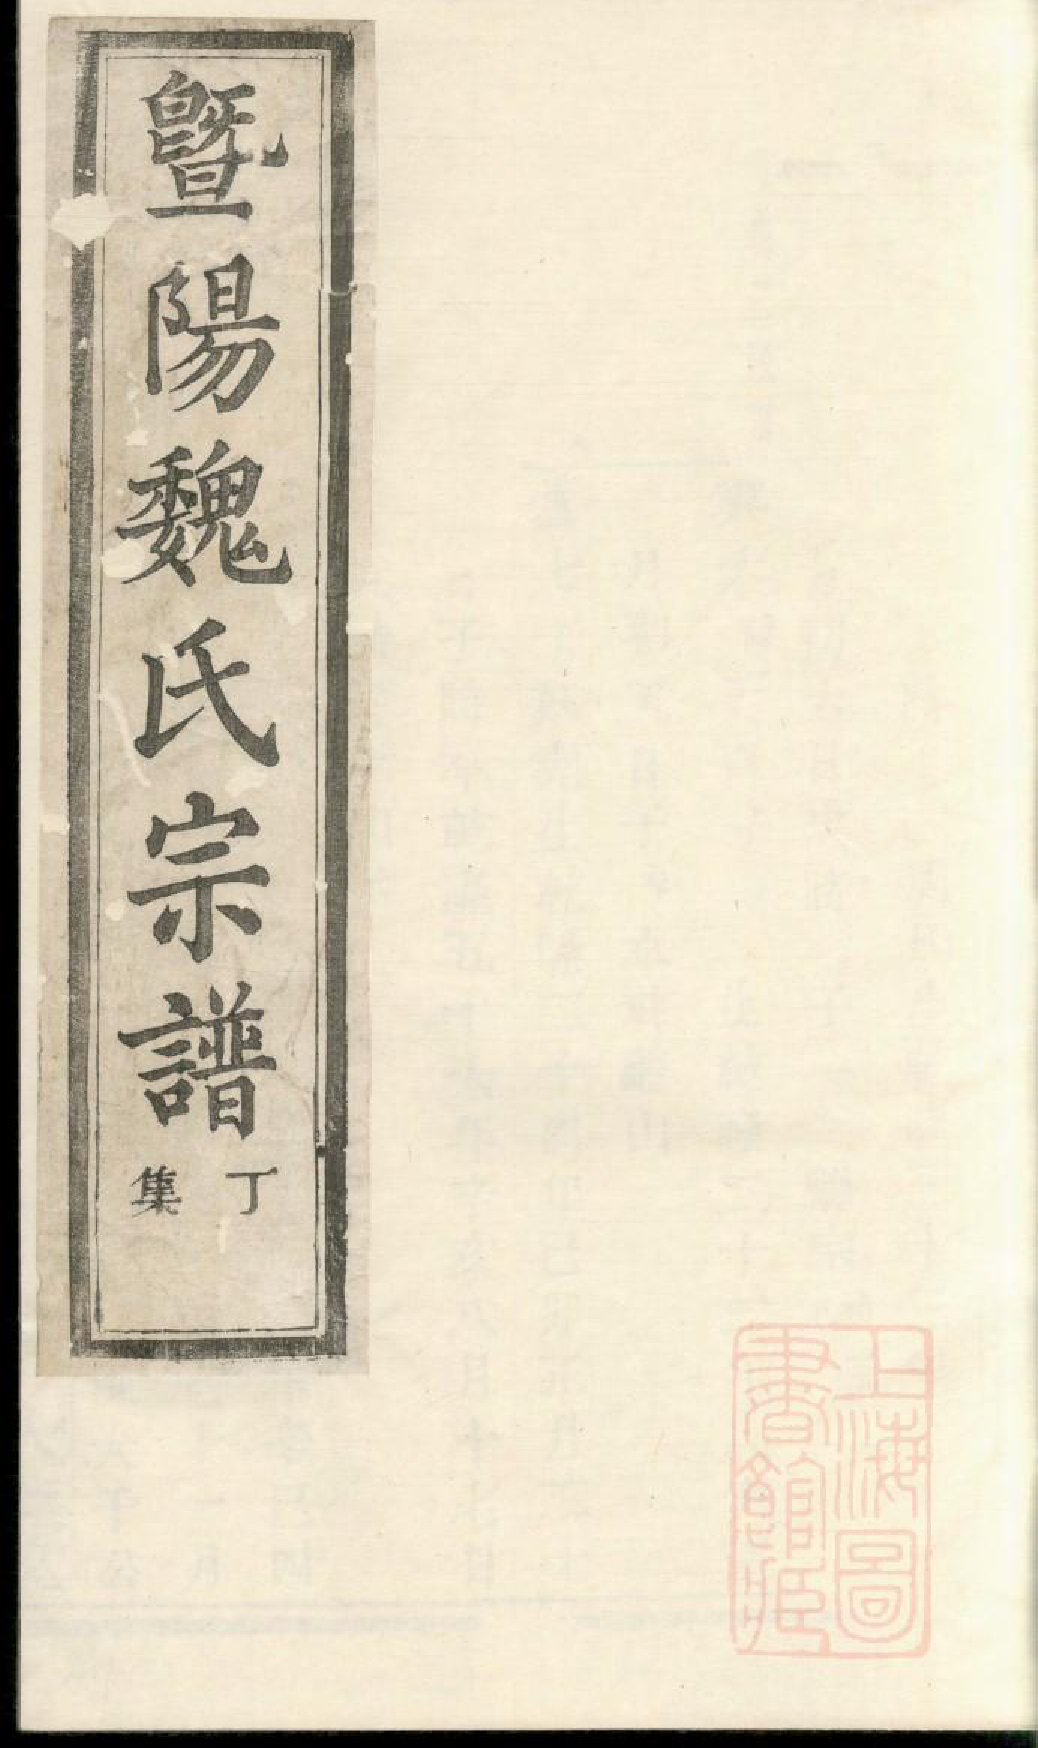 暨陽魏氏宗譜
丁集
上海圖
書館藏